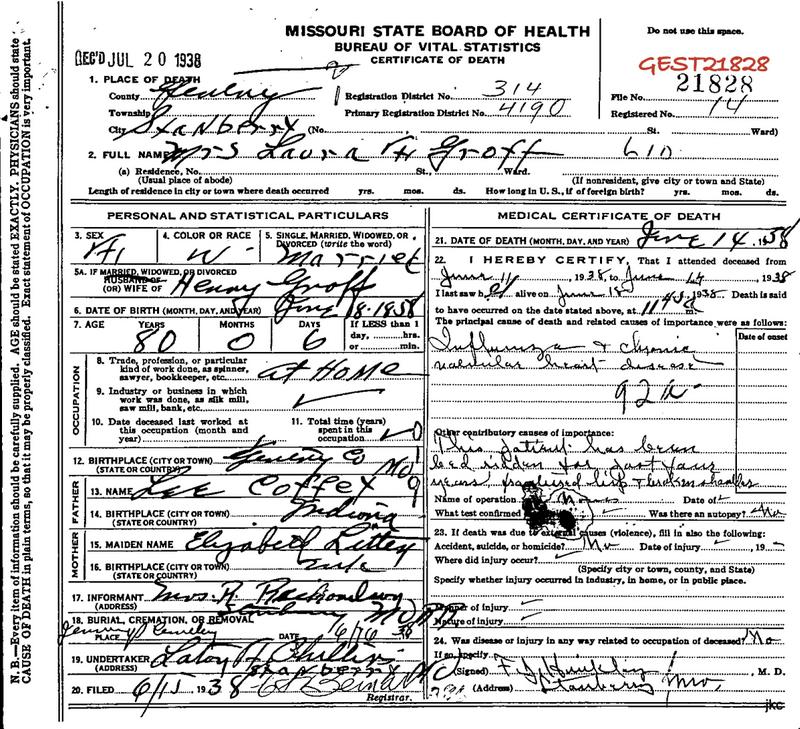 MISSOURI STATE BOARD OF HEALTH
BUREAU OF VITAL STATISTICS
CERTIFICATE OF DEATH
Do not use this space.
REC'D JUL 20 1938
GEST21828
21828
1. PLACE OF DEATH
County
Registration District No. 314
File No.
Township
Primary Registration District No. 4190
Registered No. 14
City Stanberry (No. St. Ward)
2. FULL NAME Mrs Laura H Groff
(a) Residence, No. St., Ward.
(Usual place of abode) (If nonresident, give city or town and State)
Length of residence in city or town where death occurred yrs. mos. ds. How long in U.S., if of foreign birth? yrs. mos. ds.
PERSONAL AND STATISTICAL PARTICULARS
3. SEX
4. COLOR OR RACE W
5. SINGLE, MARRIED, WIDOWED, OR DIVORCED (write the word) Married
5A. IF MARRIED, WIDOWED, OR DIVORCED
HUSBAND OF
(OR) WIFE OF Henry Groff
6. DATE OF BIRTH (MONTH, DAY, AND YEAR) June 8-1858
7. AGE YEARS 80 MONTHS 0 DAYS 6 If LESS than 1 day, hrs. or min.
OCCUPATION
8. Trade, profession, or particular kind of work done, as spinner, sawyer, bookkeeper, etc. at Home
9. Industry or business in which work was done, as silk mill, saw mill, bank, etc.
10. Date deceased last worked at this occupation (month and year)
11. Total time (years) spent in this occupation
12. BIRTHPLACE (CITY OR TOWN) Co
(STATE OR COUNTRY) Mo
FATHER
13. NAME Lee Coffey
14. BIRTHPLACE (CITY OR TOWN)
(STATE OR COUNTRY) Indiana
MOTHER
15. MAIDEN NAME Elizabeth
16. BIRTHPLACE (CITY OR TOWN)
(STATE OR COUNTRY)
17. INFORMANT Mrs. R
(ADDRESS) Stanberry Mo
18. BURIAL, CREMATION, OR REMOVAL
PLACE DATE 6/16 38
19. UNDERTAKER Phillips
(ADDRESS) Stanberry Mo
20. FILED 6/15 1938
Registrar.
MEDICAL CERTIFICATE OF DEATH
21. DATE OF DEATH (MONTH, DAY, AND YEAR) June 14 1938
22. I HEREBY CERTIFY, That I attended deceased from
June 11, 1938, to June 14, 1938
I last saw h alive on June 1938. Death is said
to have occurred on the date stated above, at m.
The principal cause of death and related causes of importance were as follows:
Date of onset
Influenza & chronic
valvular heart disease
92a
Other contributory causes of importance:
This patient has been
bed ridden for past four
years fractured hip & broken shoulder
Name of operation Date of
What test confirmed Was there an autopsy? No
23. If death was due to external causes (violence), fill in also the following:
Accident, suicide, or homicide? No Date of injury , 19
Where did injury occur?
(Specify city or town, county, and State)
Specify whether injury occurred in industry, in home, or in public place.
Manner of injury
Nature of injury
24. Was disease or injury in any way related to occupation of deceased? No
If so, specify
(Signed) , M. D.
(Address) Stanberry Mo.
jkc
N. B.—Every item of information should be carefully supplied. AGE should be stated EXACTLY. PHYSICIANS should state
CAUSE OF DEATH in plain terms, so that it may be properly classified. Exact statement of OCCUPATION is very important.